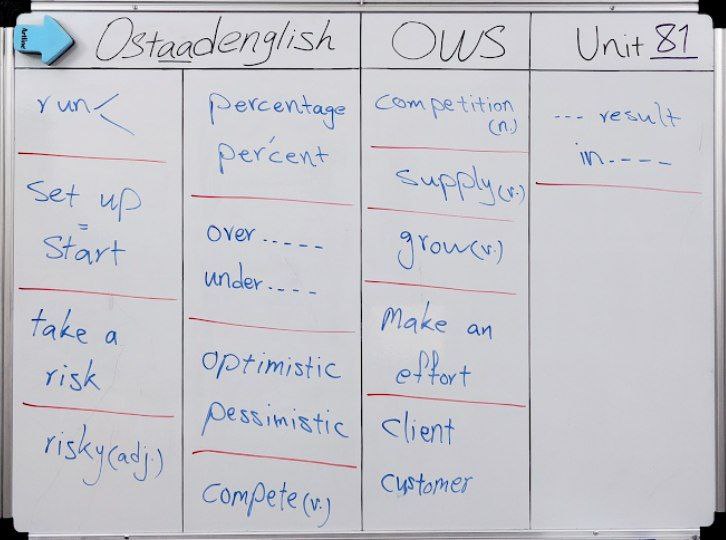 Artline
Ostaadenglish
OWS
Unit 81
run <
set up
=
Start
take a
risk
risky (adj.)
percentage
percent
over .....
under....
optimistic
pessimistic
compete (v.)
competition
(n.)
supply (v.)
grow (v.)
Make an
effort
client
customer
--- result
in----